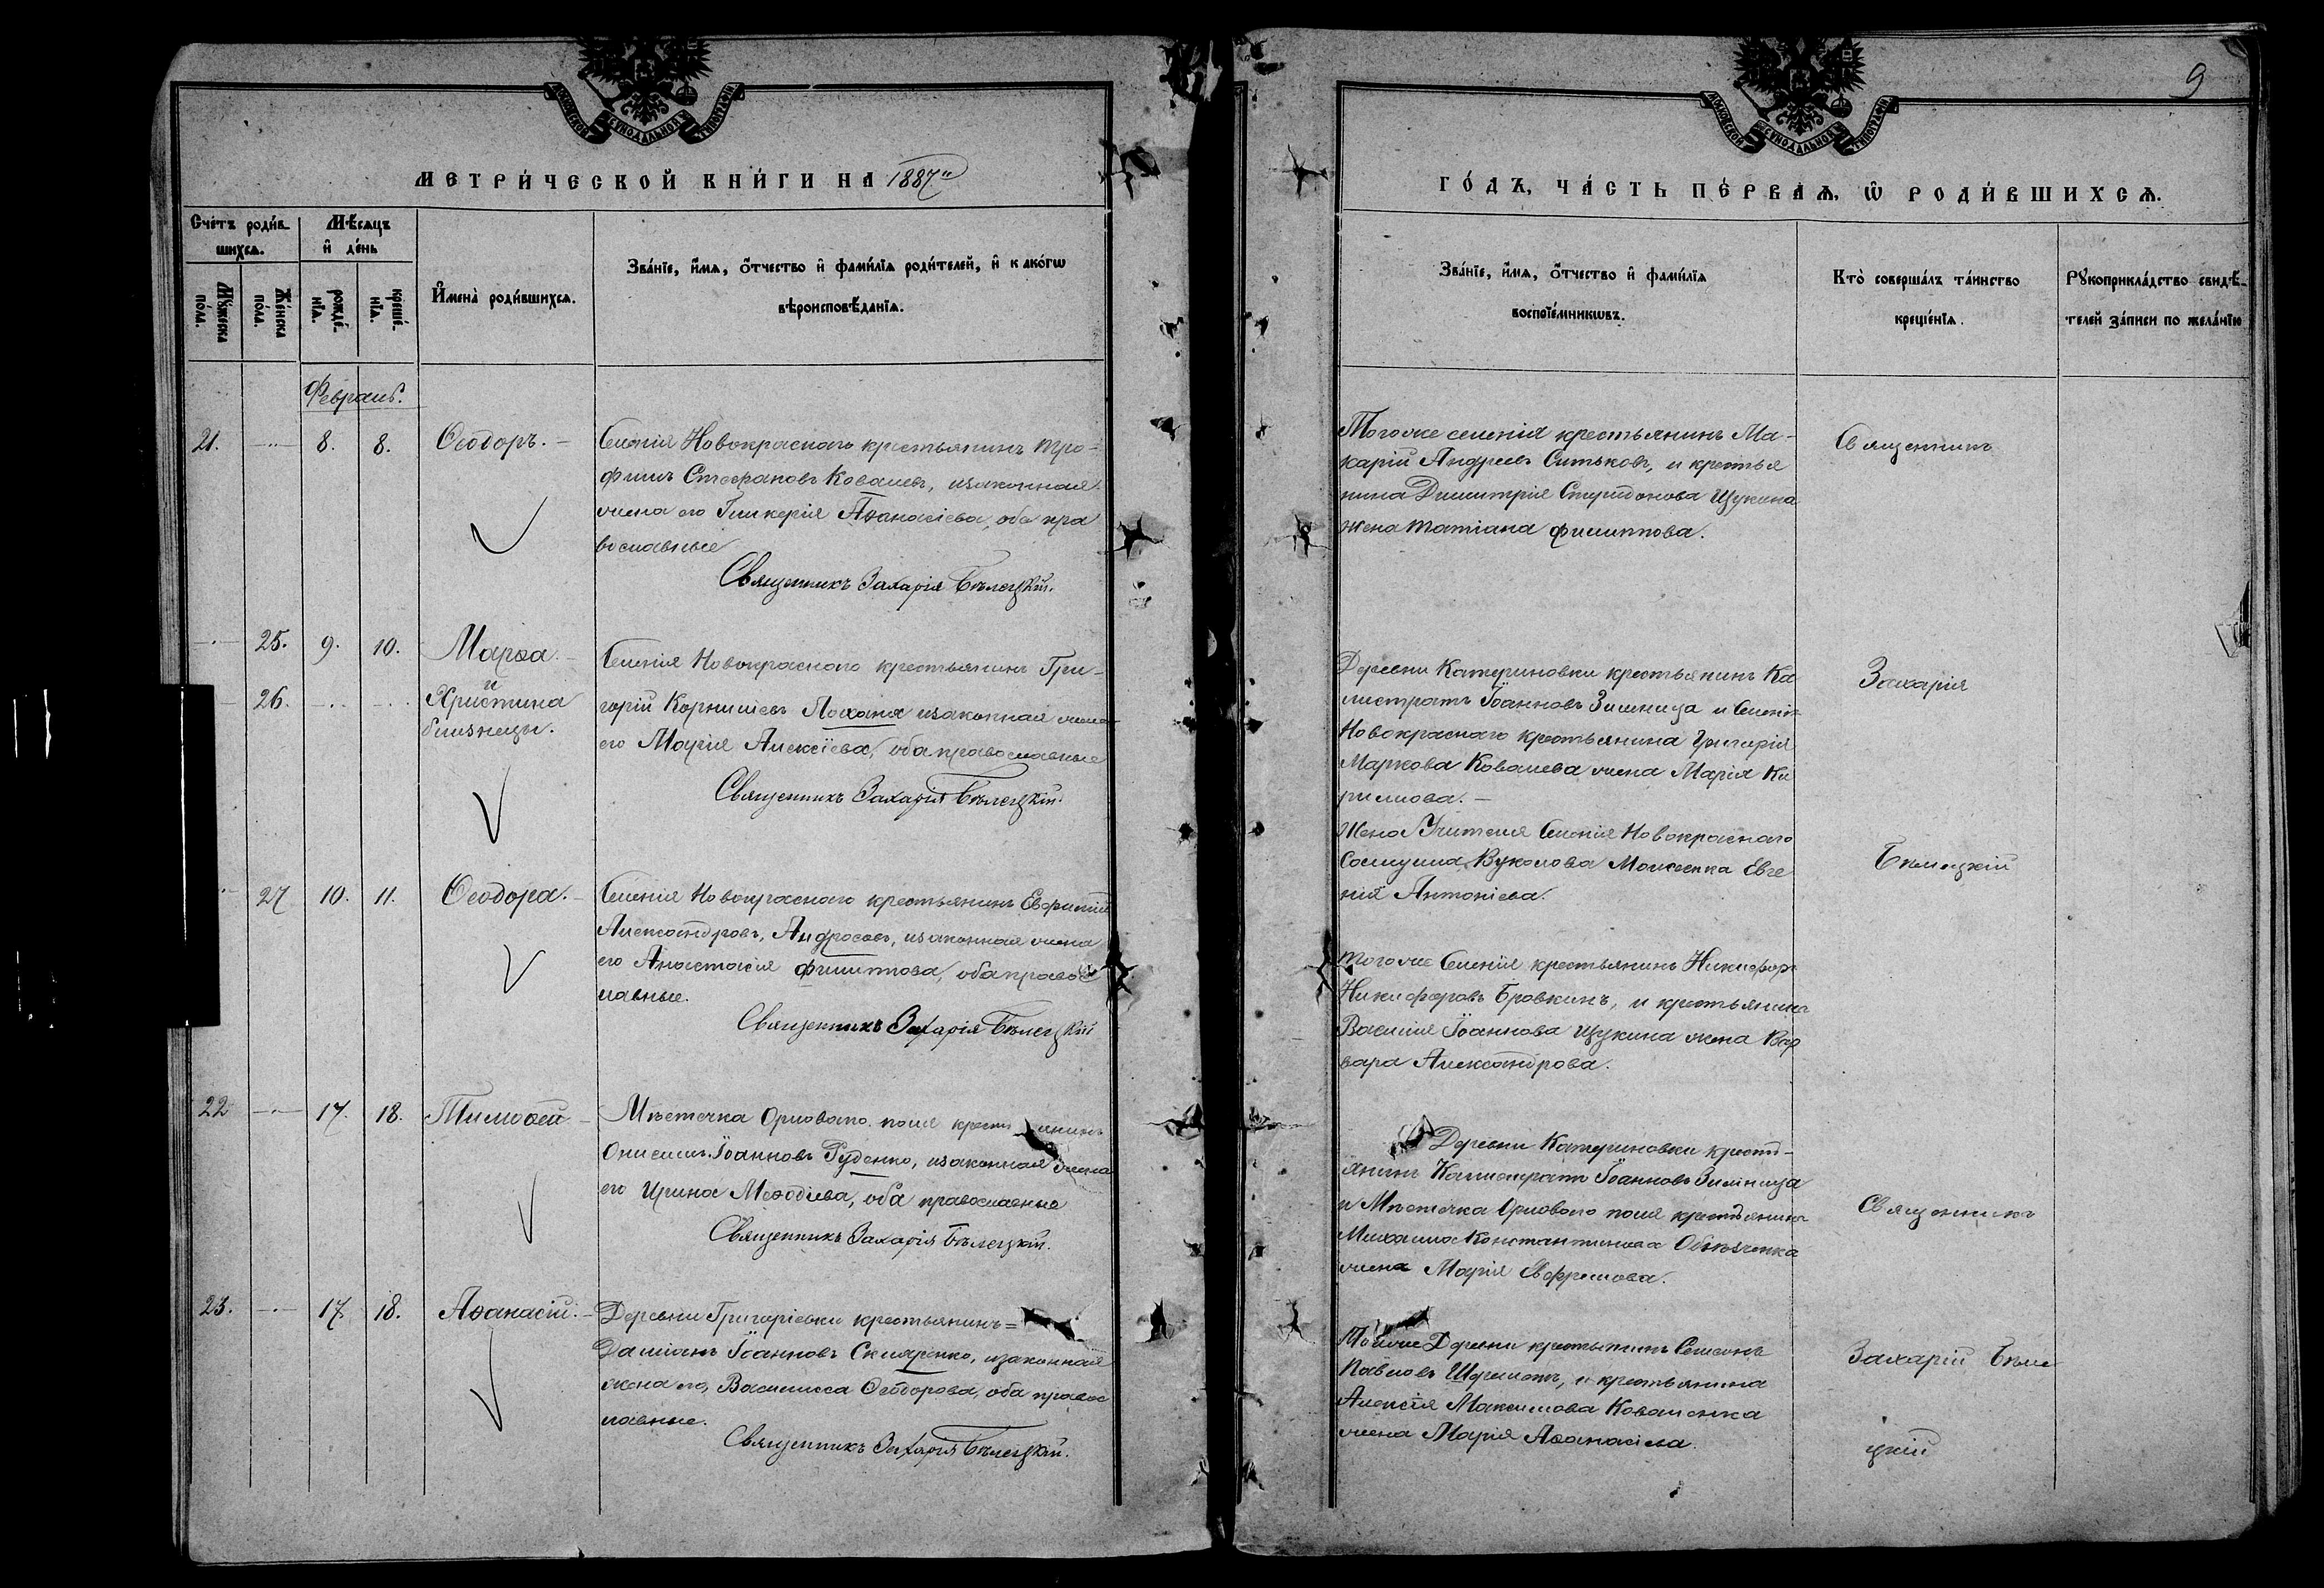 МОСКОВСКОЙ СѴНОДАЛЬНОЙ ТИПОГРАФІИ
МЕТРИ́ЧЕСКОЙ КНИ́ГИ НА 1887й
Сче́тъ роди́в-
шихсѧ.
Мѣ́сѧцъ
и҆ де́нь
Мꙋ́жеска
по́ла.
Же́нска
по́ла.
рожде́-
нїѧ.
креще́-
нїѧ.
И҆мена̀ роди́вшихсѧ.
Зва́нїе, и҆́мѧ, ѻ҆́тчество и҆ фами́лїѧ роди́телей, и҆ како́гѡ
вѣроисповѣ́данїѧ.
Февраль.
21. -..- 8. 8. Ѳеодоръ.-
Селенія Новокраснаго крестьянинъ Тро-
фимъ Стефановъ Ковалевъ, и законная
жена его Гликерія Аѳанасіева, оба пра
вославные
Священникъ Захарія Бѣлецкій.
25. 9. 10. Марѳа.-
и
26. Христина
близнецы.
Селенія Новокраснаго крестьянинъ Гри-
горій Корниліевъ и законная жена
его Марія Алексіева, оба православные
Священникъ Захарія Бѣлецкій.
27 10. 11. Ѳеодора.-
Селенія Новокраснаго крестьянинъ Евфимій
Александровъ, Андросовъ, и законная жена
его Анастасія Филиппова, оба правос
лавные.
Священникъ Захарія Бѣлецкій
22 -.- 17. 18. Тимоѳей -
Мѣстечка Орловаго поля крестьянинъ
Онисимъ Іоанновъ Руденко, и законная жена
его Ирина Меѳодіева, оба православные
Священникъ Захарія Бѣлецкій.
23. -.- 17. 18. Аѳанасій.-
Деревни Григоріевки крестьянинъ=
Даміанъ Іоанновъ Скляренко, и законная
жена его, Василисса Ѳеодорова, оба правос
лавные.
Священникъ Захарія Бѣлецкій.
9
МОСКОВСКОЙ СѴНОДАЛЬНОЙ ТИПОГРАФІИ
ГО́ДЪ, ЧА́СТЬ ПЕ́РВАѦ, Ѡ҆ РОДИ́ВШИХСѦ.
Зва́нїе, и҆́мѧ, ѻ҆́тчество и҆ фами́лїѧ
воспрїе́мникѡвъ.
Кто̀ соверша́лъ та́инство
креще́нїѧ.
Рꙋкоприкла́дство свидѣ́-
телей за́писи по жела́нїю
Тогоже селенія крестьянинъ Ма-
карій Андреевъ Ситьковъ, и крестья
нина Димитрія Спиридонова Щукина
жена Татіана Филиппова.
Священникъ
Деревни Катериновки крестьянинъ Ка
листратъ Іоанновъ Зимница и Селенія
Новокраснаго крестьянина Григорія
Маркова Ковалева жена Марія Ки
риллова.-
Захарія
Жена Учителя Селенія Новокраснаго
Вуколова Евге
нія Антоніева.
Бѣлецкій
Тогоже Селенія крестьянинъ Никифоръ
Никифоровъ Бровкинъ, и крестьянина
Василія Іоаннова Щукина жена Вар
вара Александрова.
Деревни Катериновки крестъ-
янинъ Калистратъ Іоанновъ Зимница
и Мѣстечка Орловаго поля крестьянина
Михаила Константинова
жена Марія Ефремова.
Священникъ
Тойже Деревни крестьянинъ Семеонъ
Павловъ и крестьянина
Алексія Максимова Коваленка
жена Марія Аѳанасіева.
Захарій Бѣле
цкій